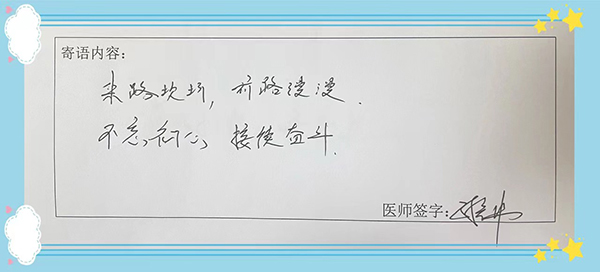 寄语内容:
来路坎坷, 前路漫漫.
不忘初心, 接续奋斗.
医师签字: